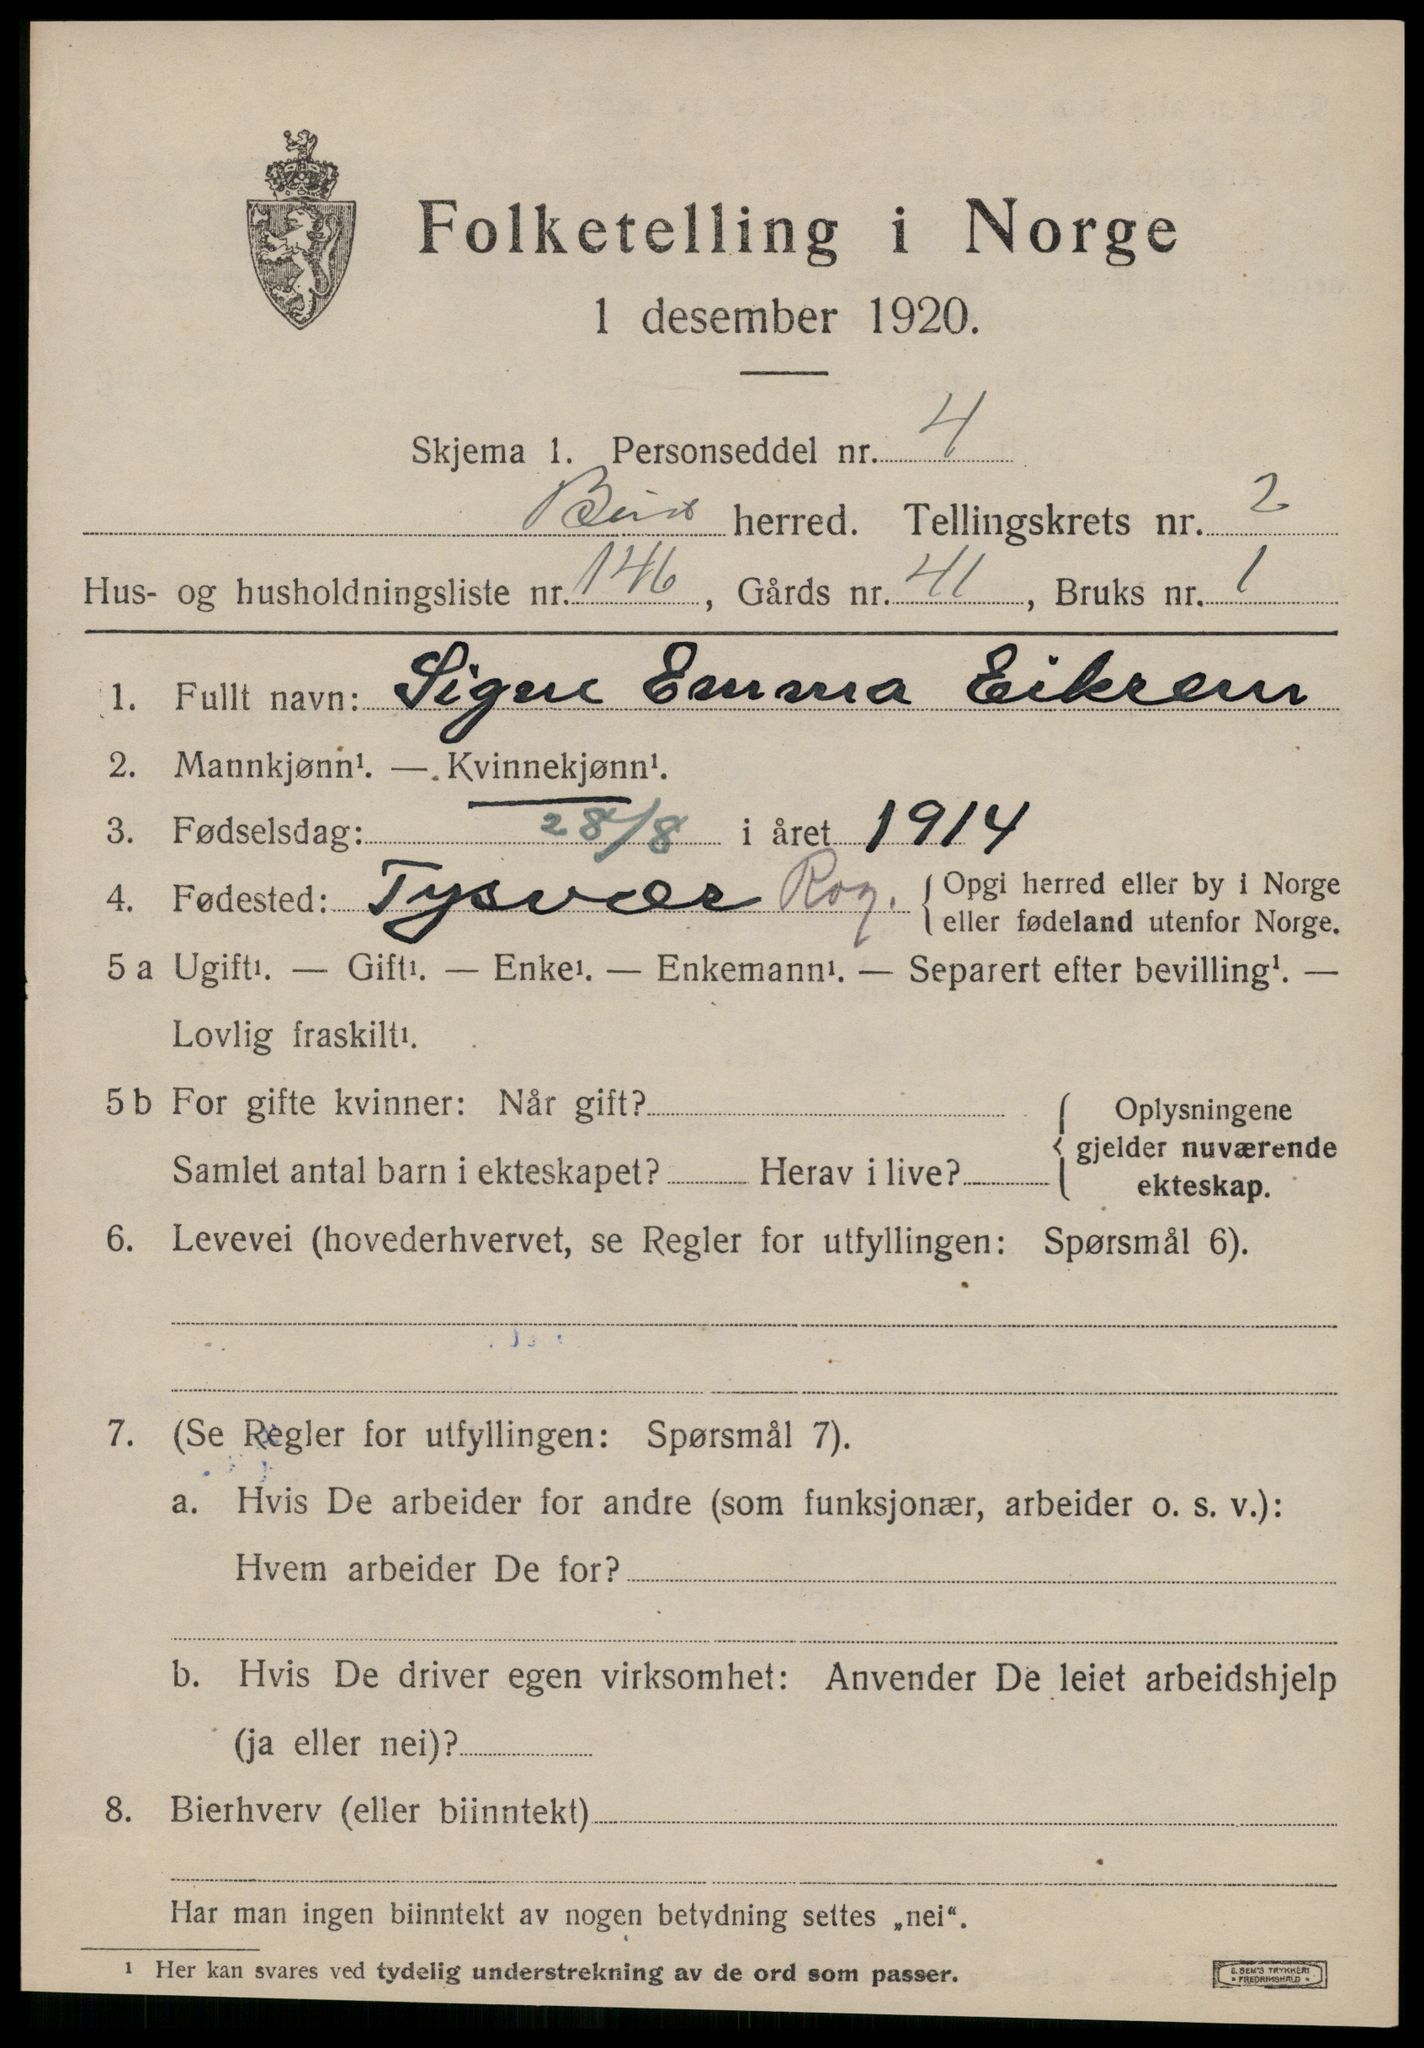 Folketelling i Norge
1 desember 1920.
Skjema 1. Personseddel nr. 4
herred. Tellingskrets nr. 2
Hus- og husholdningsliste nr. 146, Gårds nr. 41, Bruks nr. 1
1. Fullt navn: Signe Emma Eikrem
2. Mannkjønn¹. — Kvinnekjønn¹.
3. Fødselsdag: 28/8 i året 1914
4. Fødested: Tysvær Rog. { Opgi herred eller by i Norge
eller fødeland utenfor Norge.
5 a Ugift¹. — Gift¹. — Enke¹. — Enkemann¹. — Separert efter bevilling¹. —
Lovlig fraskilt¹.
5 b For gifte kvinner: Når gift?
Samlet antal barn i ekteskapet? Herav i live?
{ Oplysningene
gjelder nuværende
ekteskap.
6. Levevei (hovederhvervet, se Regler for utfyllingen: Spørsmål 6).
7. (Se Regler for utfyllingen: Spørsmål 7).
a. Hvis De arbeider for andre (som funksjonær, arbeider o. s. v.):
Hvem arbeider De for?
b. Hvis De driver egen virksomhet: Anvender De leiet arbeidshjelp
(ja eller nei)?
8. Bierhverv (eller biinntekt)
Har man ingen biinntekt av nogen betydning settes „nei“.
¹ Her kan svares ved tydelig understrekning av de ord som passer.
E. SEM'S TRYKKERI
• FREDRIKSHALD •